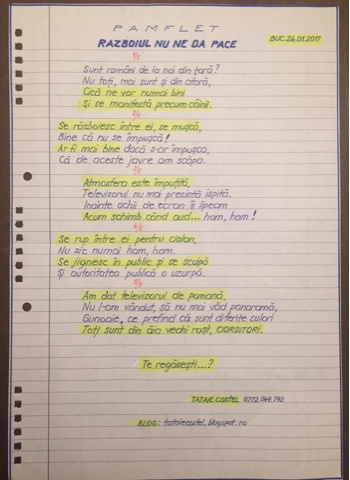 PAMFLET
RAZBOIUL NU NE DA PACE
BUC. 26.01.2017
1/5
Sunt români de la noi din țară?
Nu toți, mai sunt și din afară,
Cică ne vor numai bini
Și se manifestă precum câinii.
2/5
Se războiesc între ei, se mușcă,
Bine că nu se împușcă!
Ar fi mai bine dacă s-ar împușca,
Că de aceste javre am scăpa.
3/5
Atmosfera este împuțită,
Televizorul nu mai prezintă ispită.
Inainte ochii de ecran îi lipeam
Acum schimb când aud... ham, ham!
4/5
Se rup între ei pentru ciolan,
Nu zic numai ham, ham.
Se jignesc în public și se scuipă
Și autoritatea publică o uzurpă.
5/5
Am dat televizorul de pomană,
Nu l-am vândut, să nu mai văd panaramă,
Gunoaie, ce pretind că sunt diferite culori
Toți sunt din ăia vechi roșii, CIORDITORI.
Te regăsești...?
TATAIE COSTEL 0772.049.792
BLOG: tataiecostel.blogspot.ro